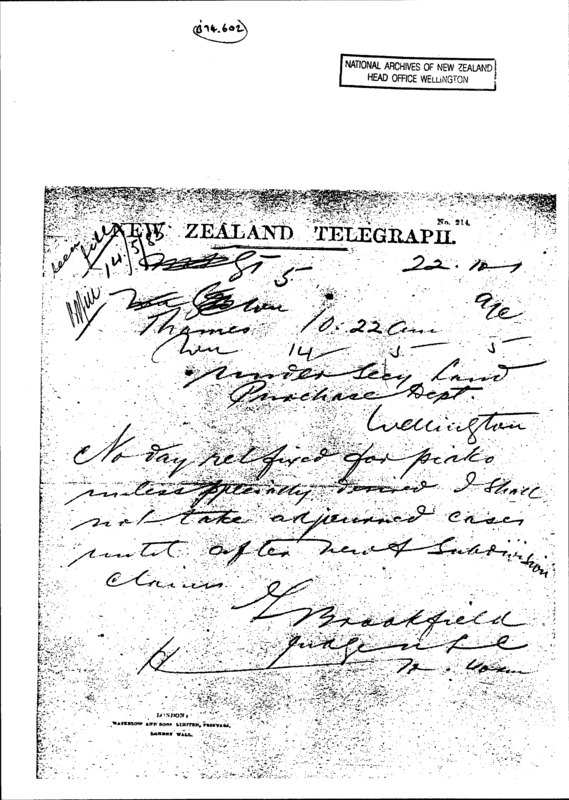 NATIONAL ARCHIVES OF NEW ZEALAND
HEAD OFFICE WELLINGTON
No. 214.
NEW ZEALAND TELEGRAPH.
14/5/85
5
Thames 10:22 am
Wn 14 5 5
Under Secy Land
Purchase Dept.
Wellington
No day yet fixed for piako
unless specially desired I shall
not take adjourned cases
until after new & Subdivision
claims
Brookfield
Judge
LONDON:
WATERLOW AND SONS LIMITED, PRINTERS,
LONDON WALL.